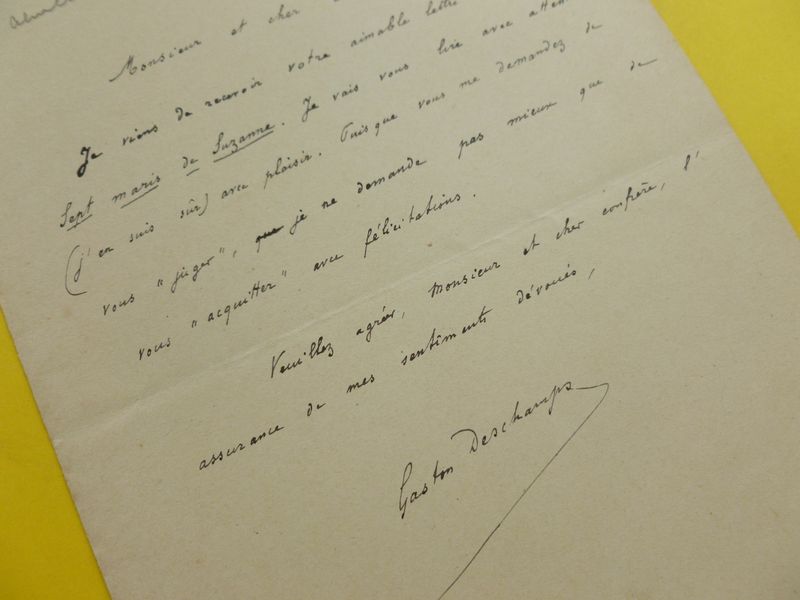 Monsieur et cher
Je viens de recevoir votre aimable lettre
Sept maris de Suzanne. Je vais vous lire avec atten
(j'en suis sûr) avec plaisir. Puisque vous me demandez de
vous "juger", que je ne demande pas mieux que de
vous "acquitter" avec félicitations.
Veuillez agréer, Monsieur et cher confrère, l'
assurance de mes sentiments dévoués,
Gaston Deschamps